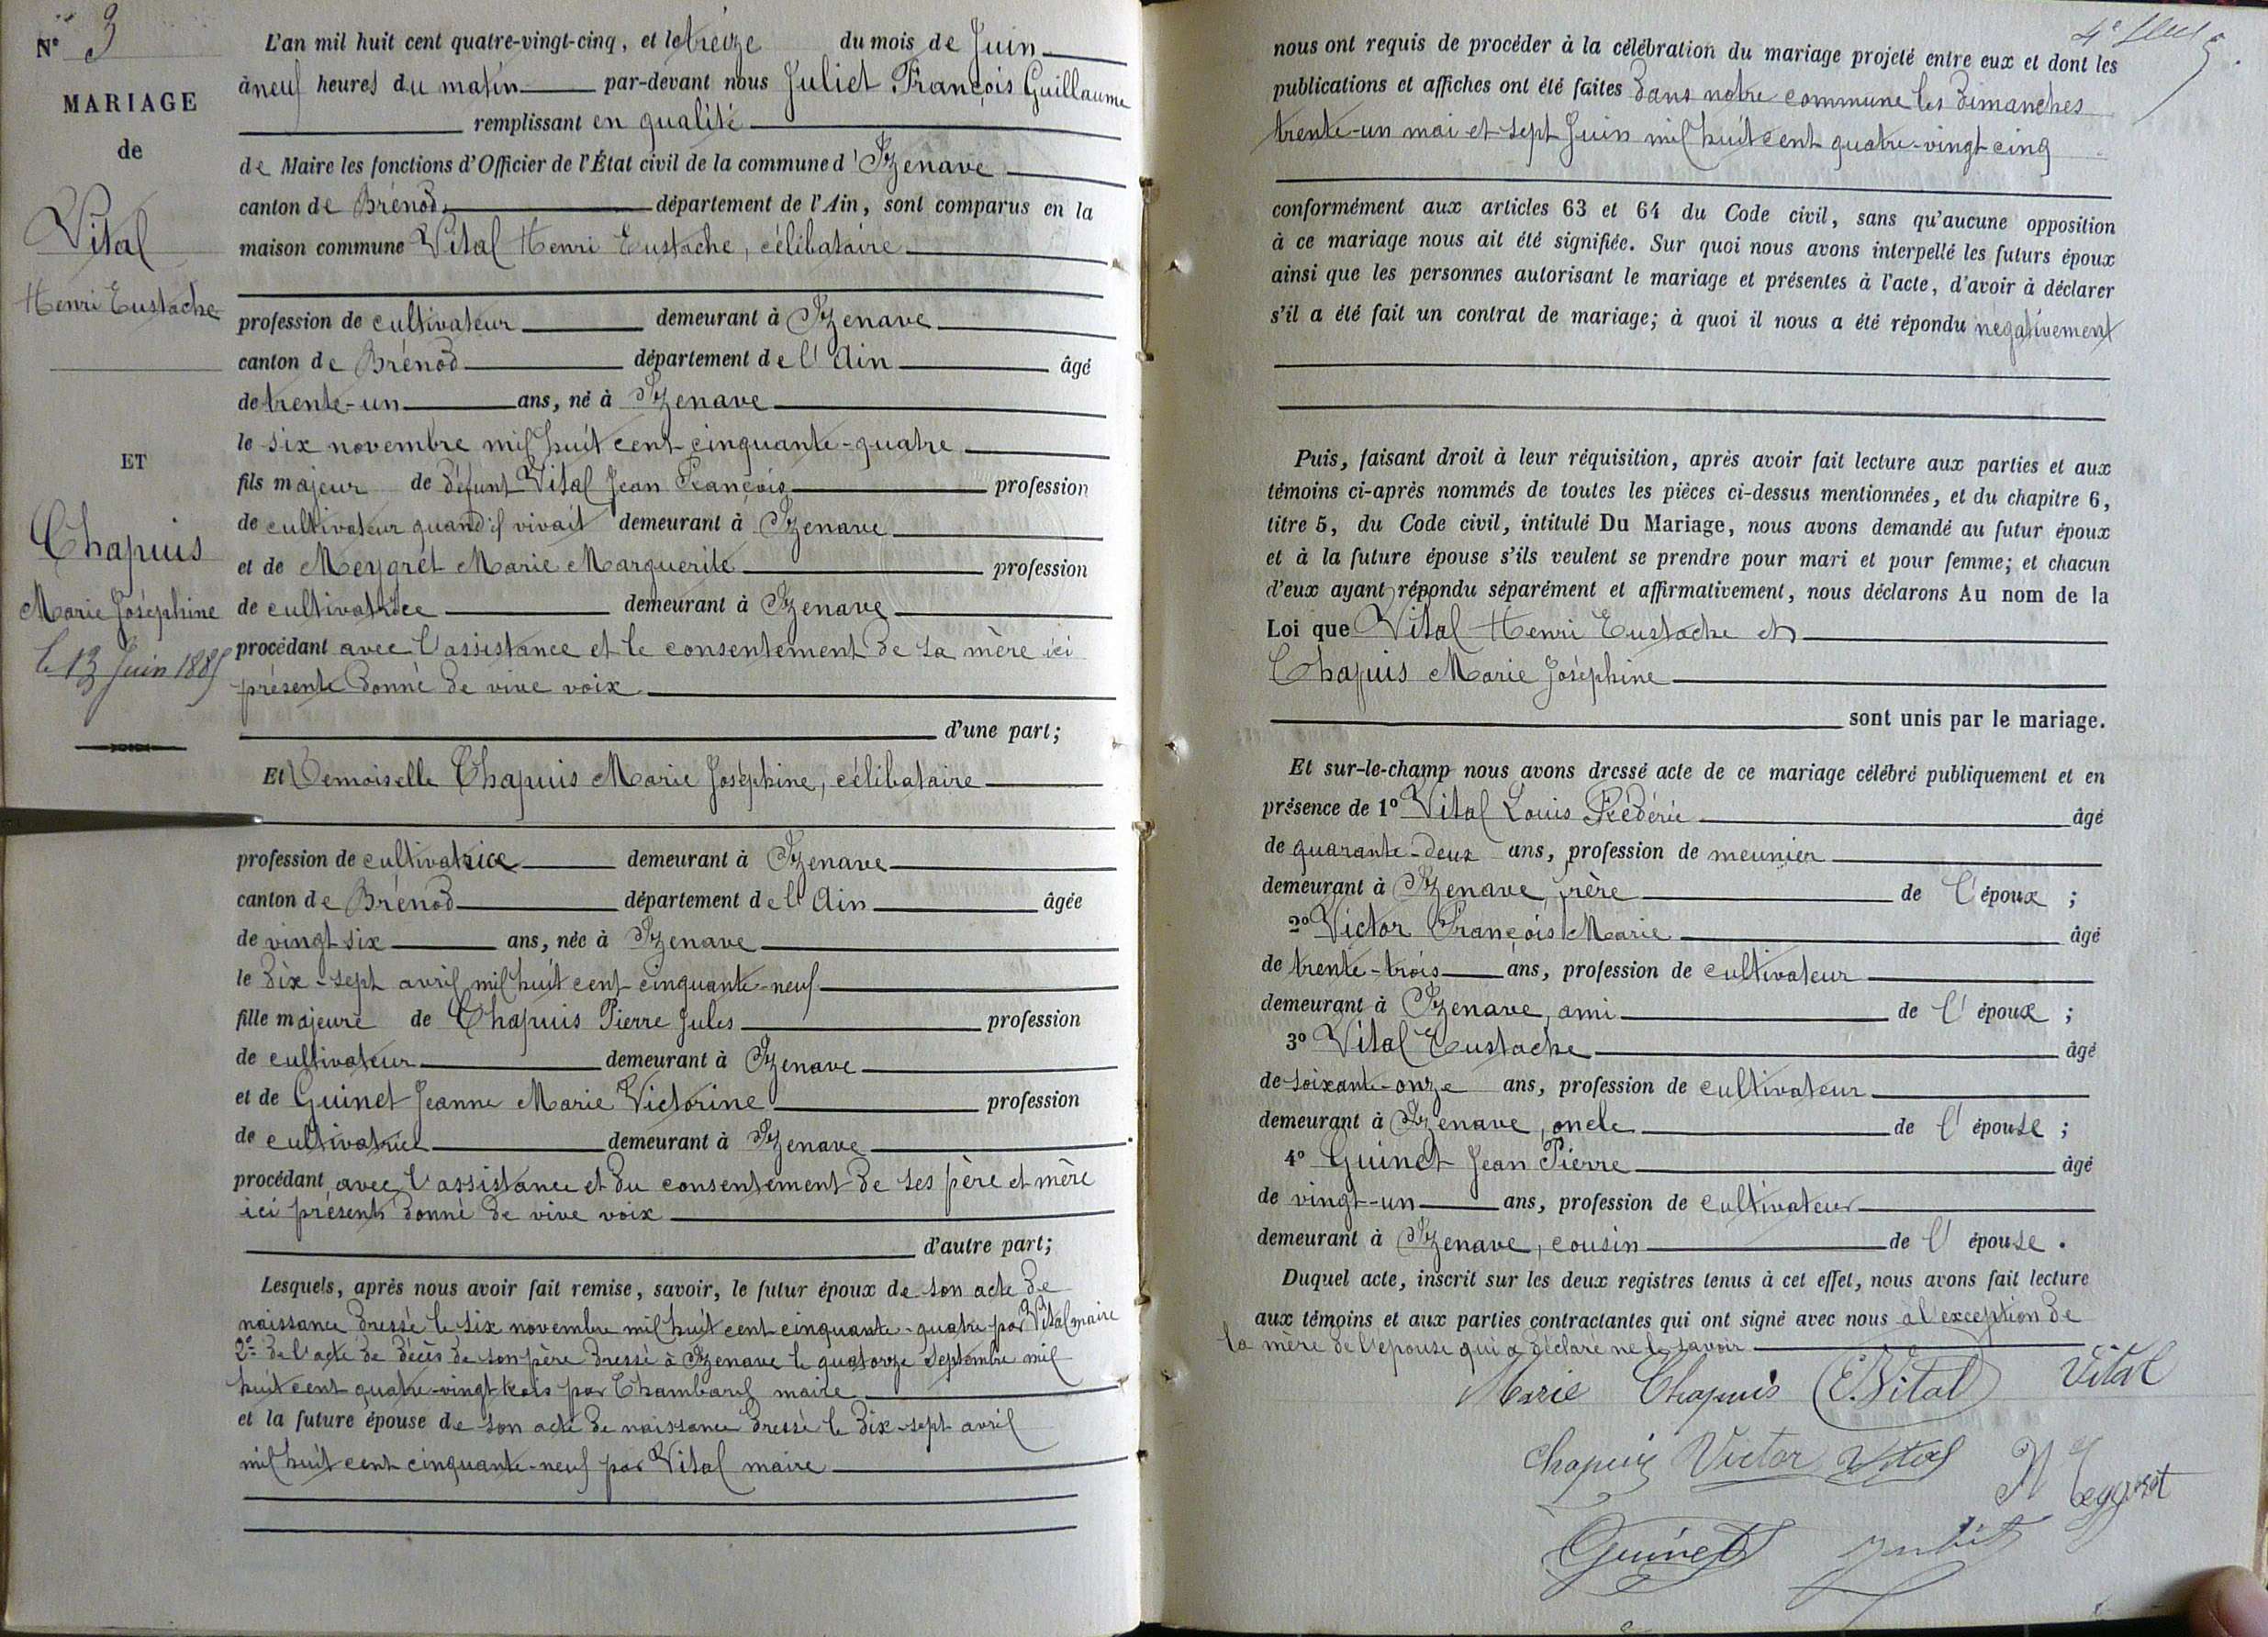 N° 3
MARIAGE
de
Vital
Henri Eustache
ET
Chapuis
Marie Joséphine
le 13 Juin 1885
L'an mil huit cent quatre-vingt-cinq, et le treize du mois de Juin
à neuf heures du matin par-devant nous Juliet François Guillaume
remplissant en qualité
de Maire les fonctions d'Officier de l'État civil de la commune d'Izenave
canton de Brénod, département de l'Ain, sont comparus en la
maison commune Vital Henri Eustache, célibataire
profession de cultivateur demeurant à Izenave
canton de Brénod département de l'Ain âgé
de trente-un ans, né à Izenave
le six novembre mil huit cent cinquante-quatre
fils majeur de défunt Vital Jean François profession
de cultivateur quand il vivait demeurant à Izenave
et de Meygret Marie Marguerite profession
de cultivatrice demeurant à Izenave
procédant avec l'assistance et le consentement de sa mère ici
présente donné de vive voix
d'une part;
Et Demoiselle Chapuis Marie Joséphine, célibataire
profession de cultivatrice demeurant à Izenave
canton de Brénod département de l'Ain âgée
de vingt six ans, née à Izenave
le dix-sept avril mil huit cent cinquante-neuf
fille majeure de Chapuis Pierre Jules profession
de cultivateur demeurant à Izenave
et de Guinet Jeanne Marie Victorine profession
de cultivatrice demeurant à Izenave
procédant avec l'assistance et du consentement de ses père et mère
ici présents donné de vive voix
d'autre part;
Lesquels, après nous avoir fait remise, savoir, le futur époux de son acte de
naissance dressé le six novembre mil huit cent cinquante-quatre par Vital maire
2° de l'acte de décès de son père dressé à Izenave le quatorze septembre mil
huit cent quatre-vingt trois par Chambard maire
et la future épouse de son acte de naissance dressé le dix-sept avril
mil huit cent cinquante-neuf par Vital maire
4e
nous ont requis de procéder à la célébration du mariage projeté entre eux et dont les
publications et affiches ont été faites dans notre commune les dimanches
trente-un mai et sept Juin mil huit cent quatre-vingt cinq
conformément aux articles 63 et 64 du Code civil, sans qu'aucune opposition
à ce mariage nous ait été signifiée. Sur quoi nous avons interpellé les futurs époux
ainsi que les personnes autorisant le mariage et présentes à l'acte, d'avoir à déclarer
s'il a été fait un contrat de mariage; à quoi il nous a été répondu négativement
Puis, faisant droit à leur réquisition, après avoir fait lecture aux parties et aux
témoins ci-après nommés de toutes les pièces ci-dessus mentionnées, et du chapitre 6,
titre 5, du Code civil, intitulé Du Mariage, nous avons demandé au futur époux
et à la future épouse s'ils veulent se prendre pour mari et pour femme; et chacun
d'eux ayant répondu séparément et affirmativement, nous déclarons Au nom de la
Loi que Vital Henri Eustache et
Chapuis Marie Joséphine
sont unis par le mariage.
Et sur-le-champ nous avons dressé acte de ce mariage célébré publiquement et en
présence de 1° Vital Louis Frédéric âgé
de quarante-deux ans, profession de meunier
demeurant à Izenave, frère de l'époux ;
2° Victor François Marie âgé
de trente-trois ans, profession de cultivateur
demeurant à Izenave, ami de l'époux ;
3° Vital Eustache âgé
de soixante-onze ans, profession de cultivateur
demeurant à Izenave, oncle de l'épouse ;
4° Guinet Jean Pierre âgé
de vingt-un ans, profession de cultivateur
demeurant à Izenave, cousin de l'épouse.
Duquel acte, inscrit sur les deux registres tenus à cet effet, nous avons fait lecture
aux témoins et aux parties contractantes qui ont signé avec nous a l'exception de
la mère de l'épouse qui a déclaré ne le savoir
Marie Chapuis E. Vital Vital
Chapuis Victor Vital M Meygret
Guinet Juliet